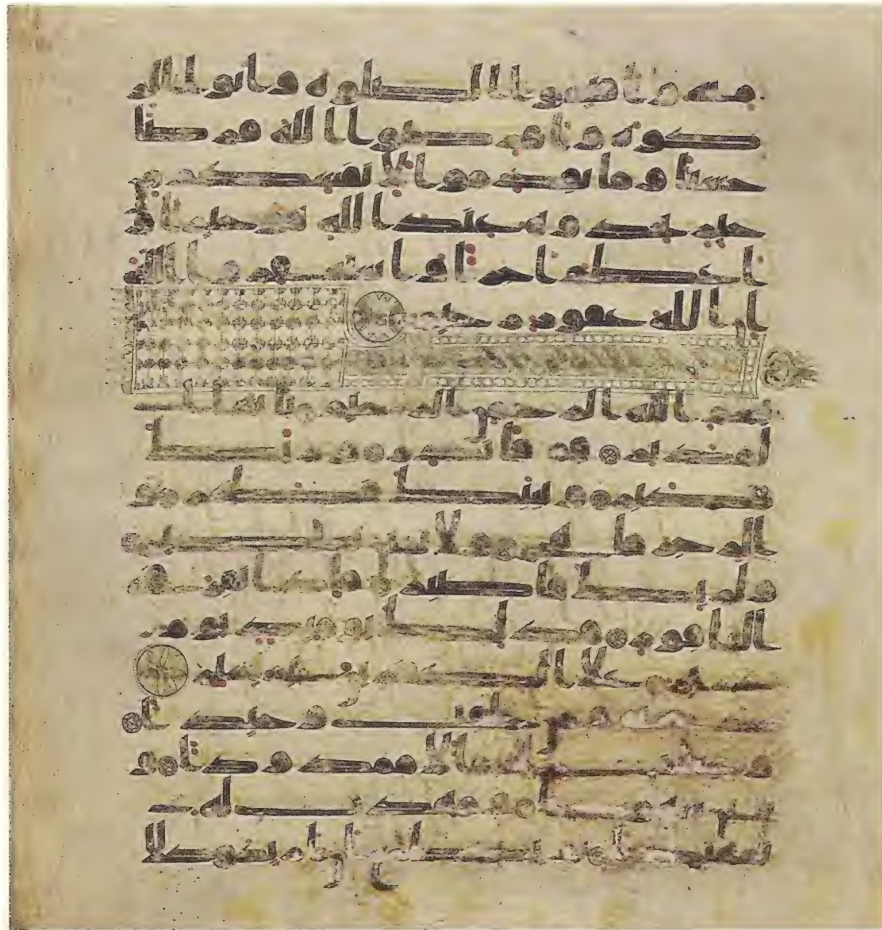 منه واقيموا الصلوه واتوا الز
كوه واقرضوا الله قرضا
حسنا وما تقدموا لانفسكم من
خير تجدوه عند الله هو خيرا و
اعظم اجرا واستغفروا الله
ان الله غفور رحيم
بسم الله الرحمن الرحيم يايها
المدثر قم فانذر وربك
فكبر وثيابك فطهر و
الرجز فاهجر ولا تمنن تستكثر
ولربك فاصبر فاذا نقر في
الناقور فذلك يومئذ يوم
عسير على الكفرين غير يسير
ذرني ومن خلقت وحيدا
وجعلت له مالا ممدودا و
بنين شهودا ومهدت له
تمهيدا ثم يطمع ان ازيد كلا